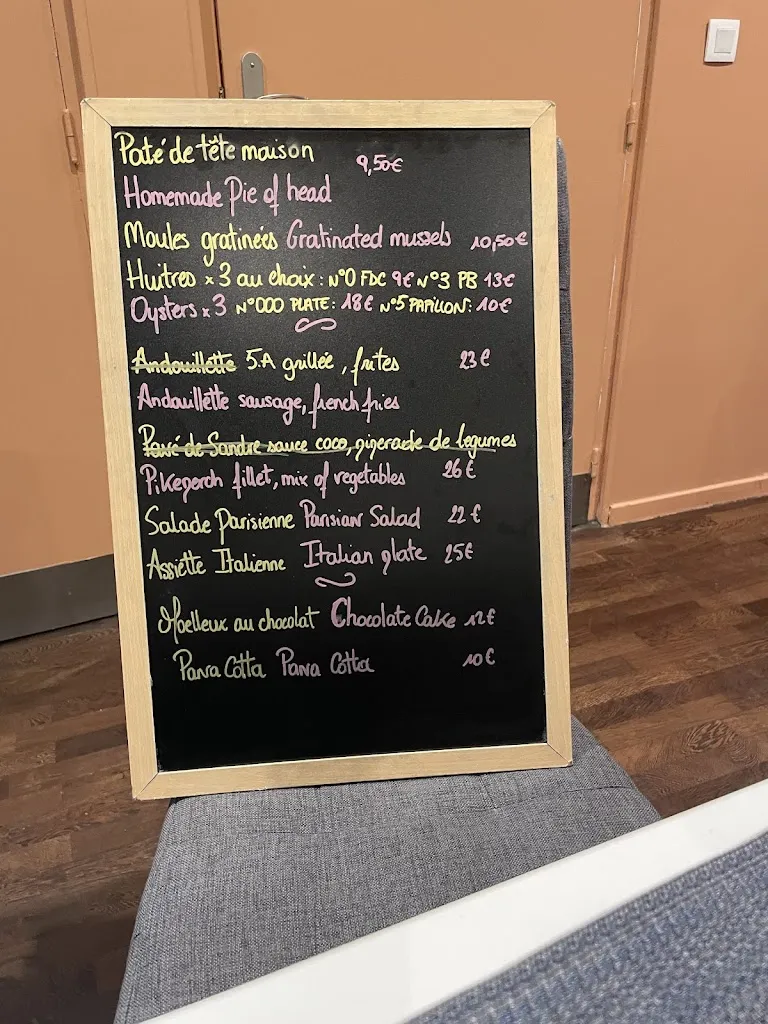 Paté de tête maison 9,50€
Homemade Pie of head
Moules gratinées Gratinated mussels 10,50€
Huitres x 3 au choix : N°0 FDC 9€ N°3 PB 13€
Oysters x 3 N°000 PLATE: 18€ N°5 PAPILLON: 10€
Andouillette 5.A grillée, frites 23€
Andouillette sausage, french fries
Pavé de Sandre sauce coco, piperade de legumes
Pikeperch fillet, mix of vegetables 26€
Salade Parisienne Parisian Salad 22€
Assiette Italienne Italian plate 25€
Moelleux au chocolat Chocolate Cake 12€
Pana Cotta Pana Cotta 10€